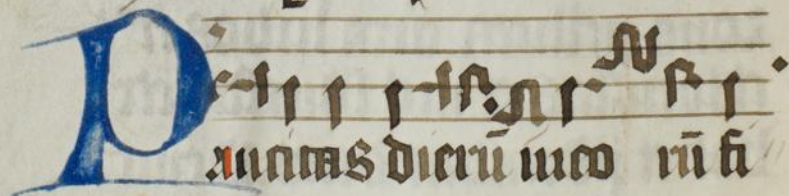 Paucitas dierū meo rū fi